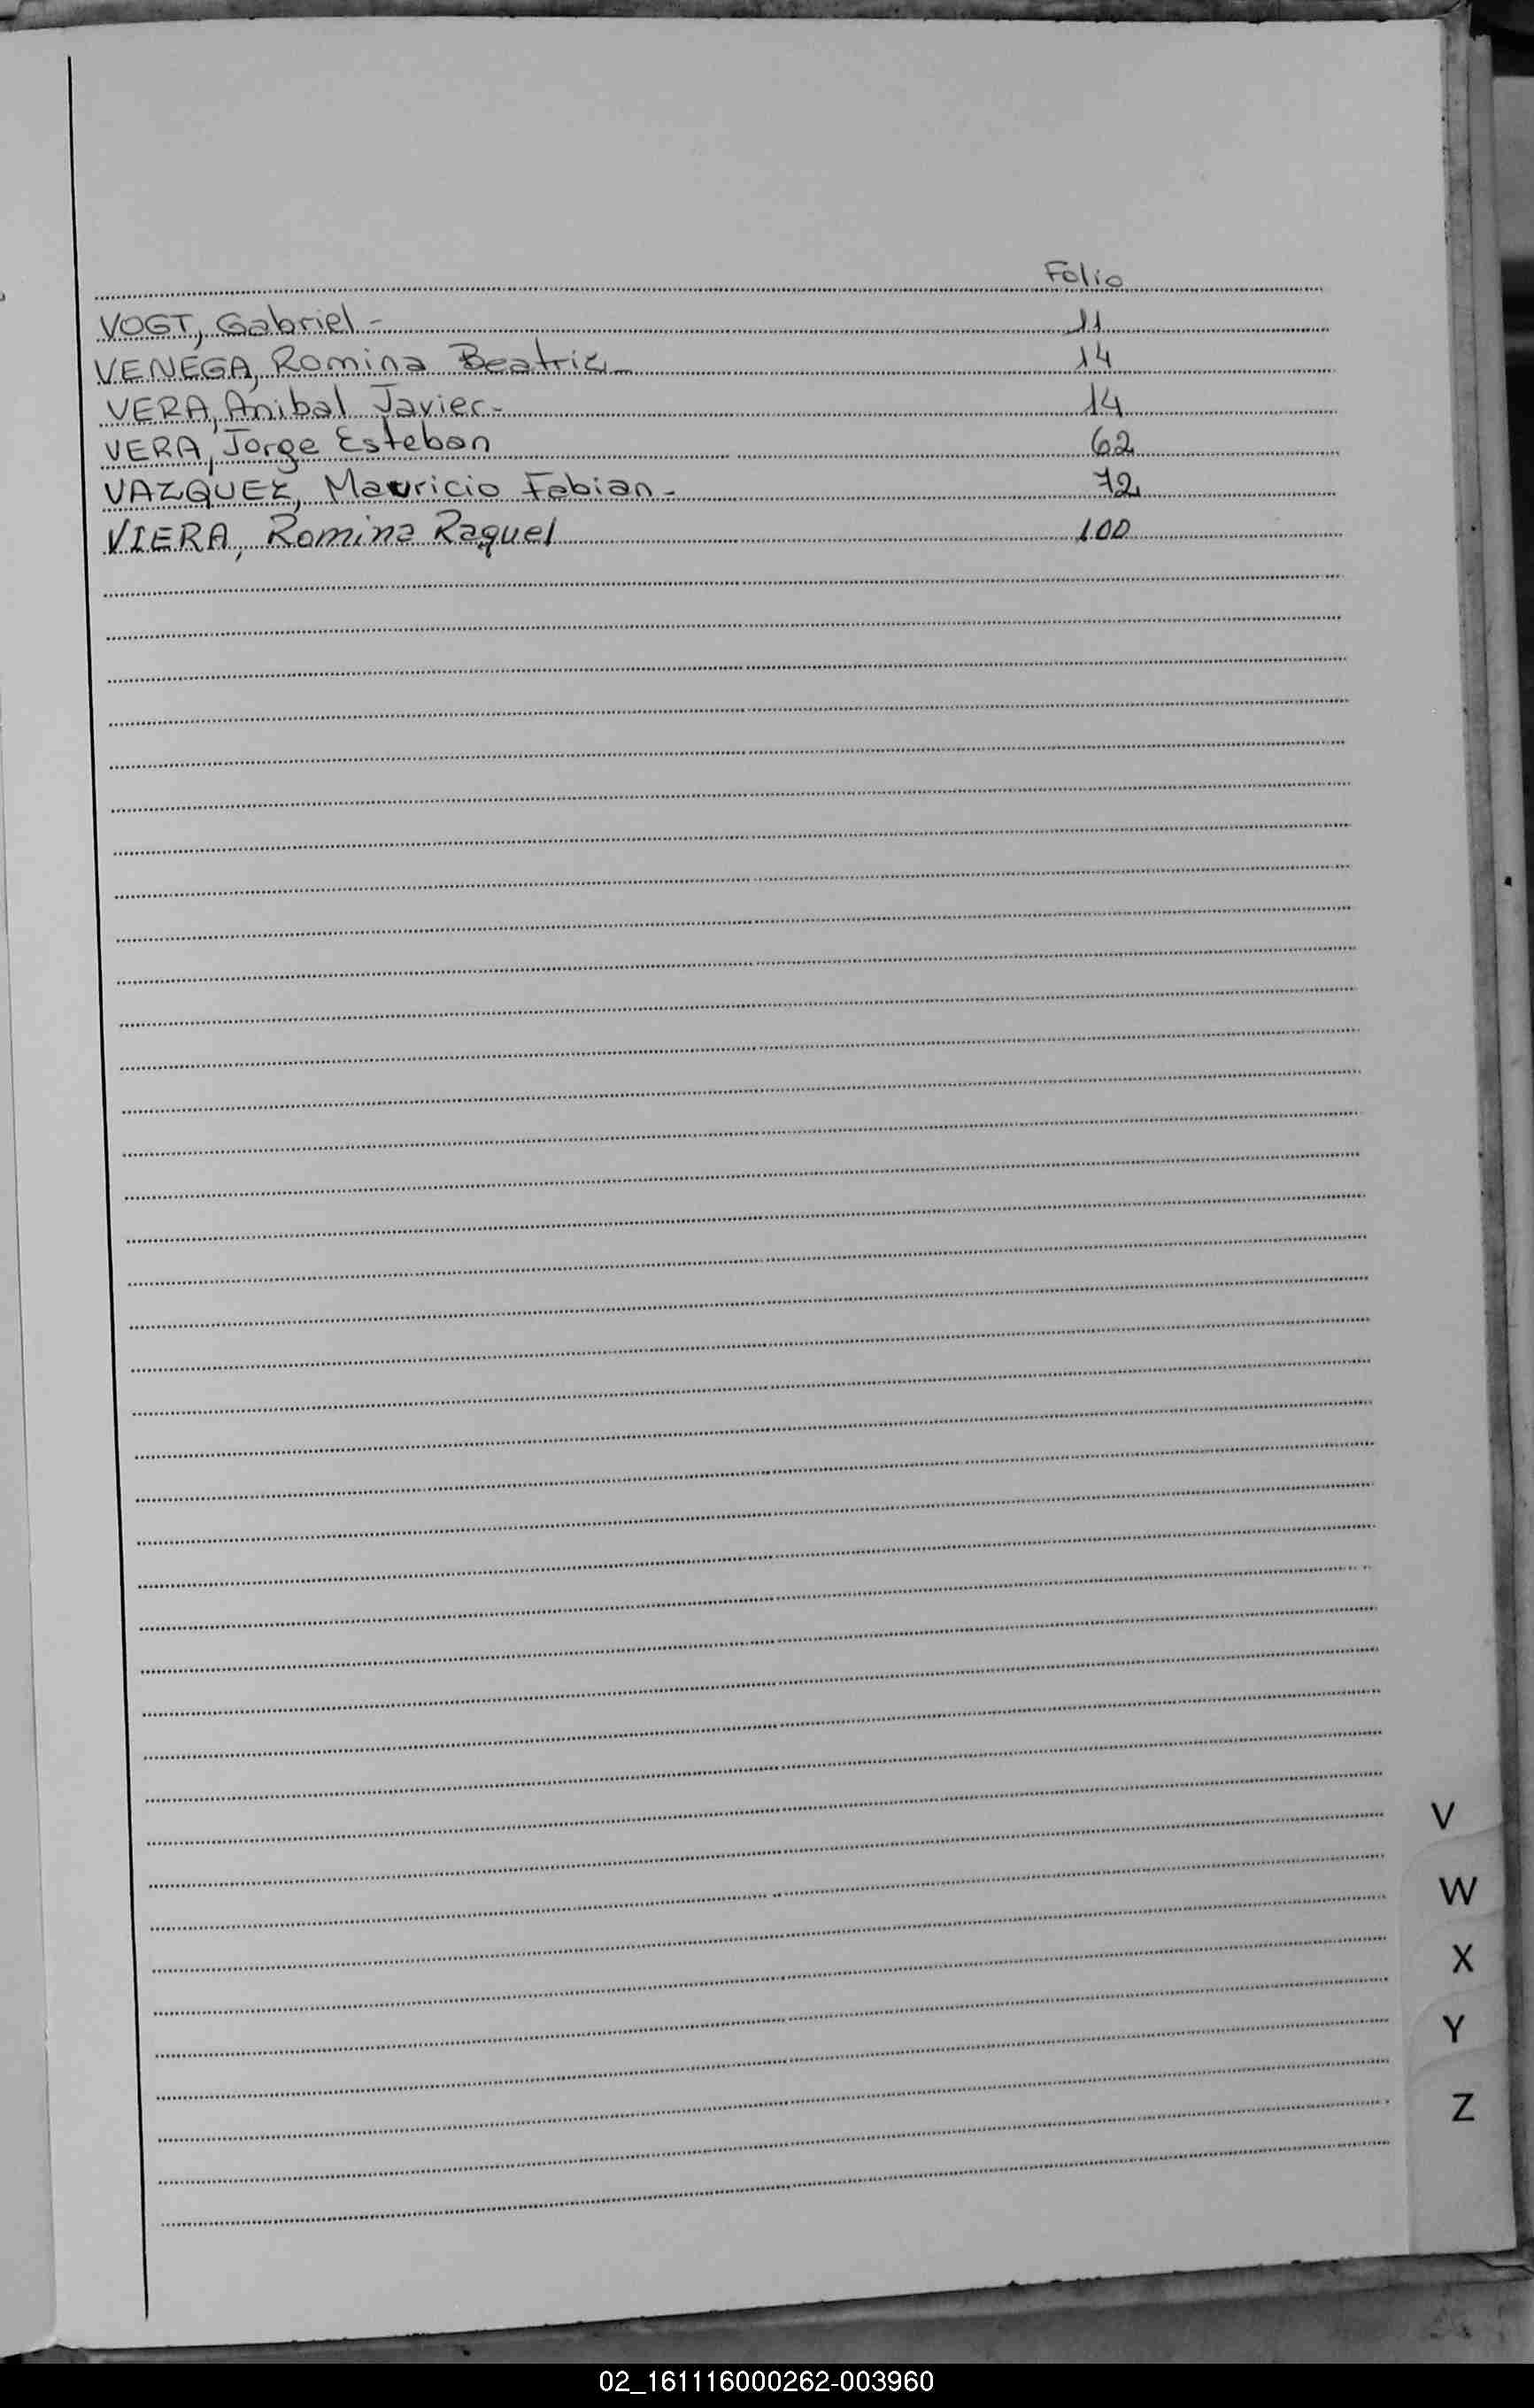 Folio
VOGT, Gabriel - 11
VENEGA, Romina Beatriz - 14
VERA, Anibal Javier - 14
VERA, Jorge Esteban 62
VAZQUEZ, Mauricio Fabian - 72
VIERA, Romina Raquel 100
V
W
X
Y
Z
02_161116000262-003960